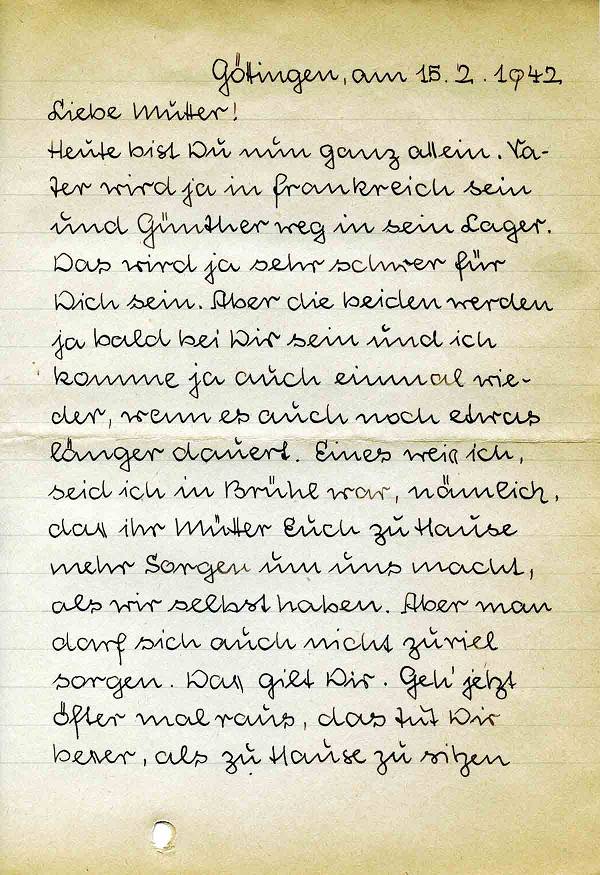 Göttingen, am 15.2.1942
Liebe Mutter!
Heute bist Du nun ganz allein. Va-
ter wird ja in Frankreich sein
und Günther weg in sein Lager.
Das wird ja sehr schwer für
Dich sein. Aber die beiden werden
ja bald bei Dir sein und ich
komme ja auch einmal wie-
der, wenn es auch noch etwas
länger dauert. Eines weiß ich,
seid ich in Brühl war, nämlich,
daß ihr Mütter Euch zu Hause
mehr Sorgen um uns macht,
als wir selbst haben. Aber man
darf sich auch nicht zuviel
sorgen. Daß gilt Dir. Geh' jetzt
öfter mal raus, das tut Dir
besser, als zu Hause zu sitzen